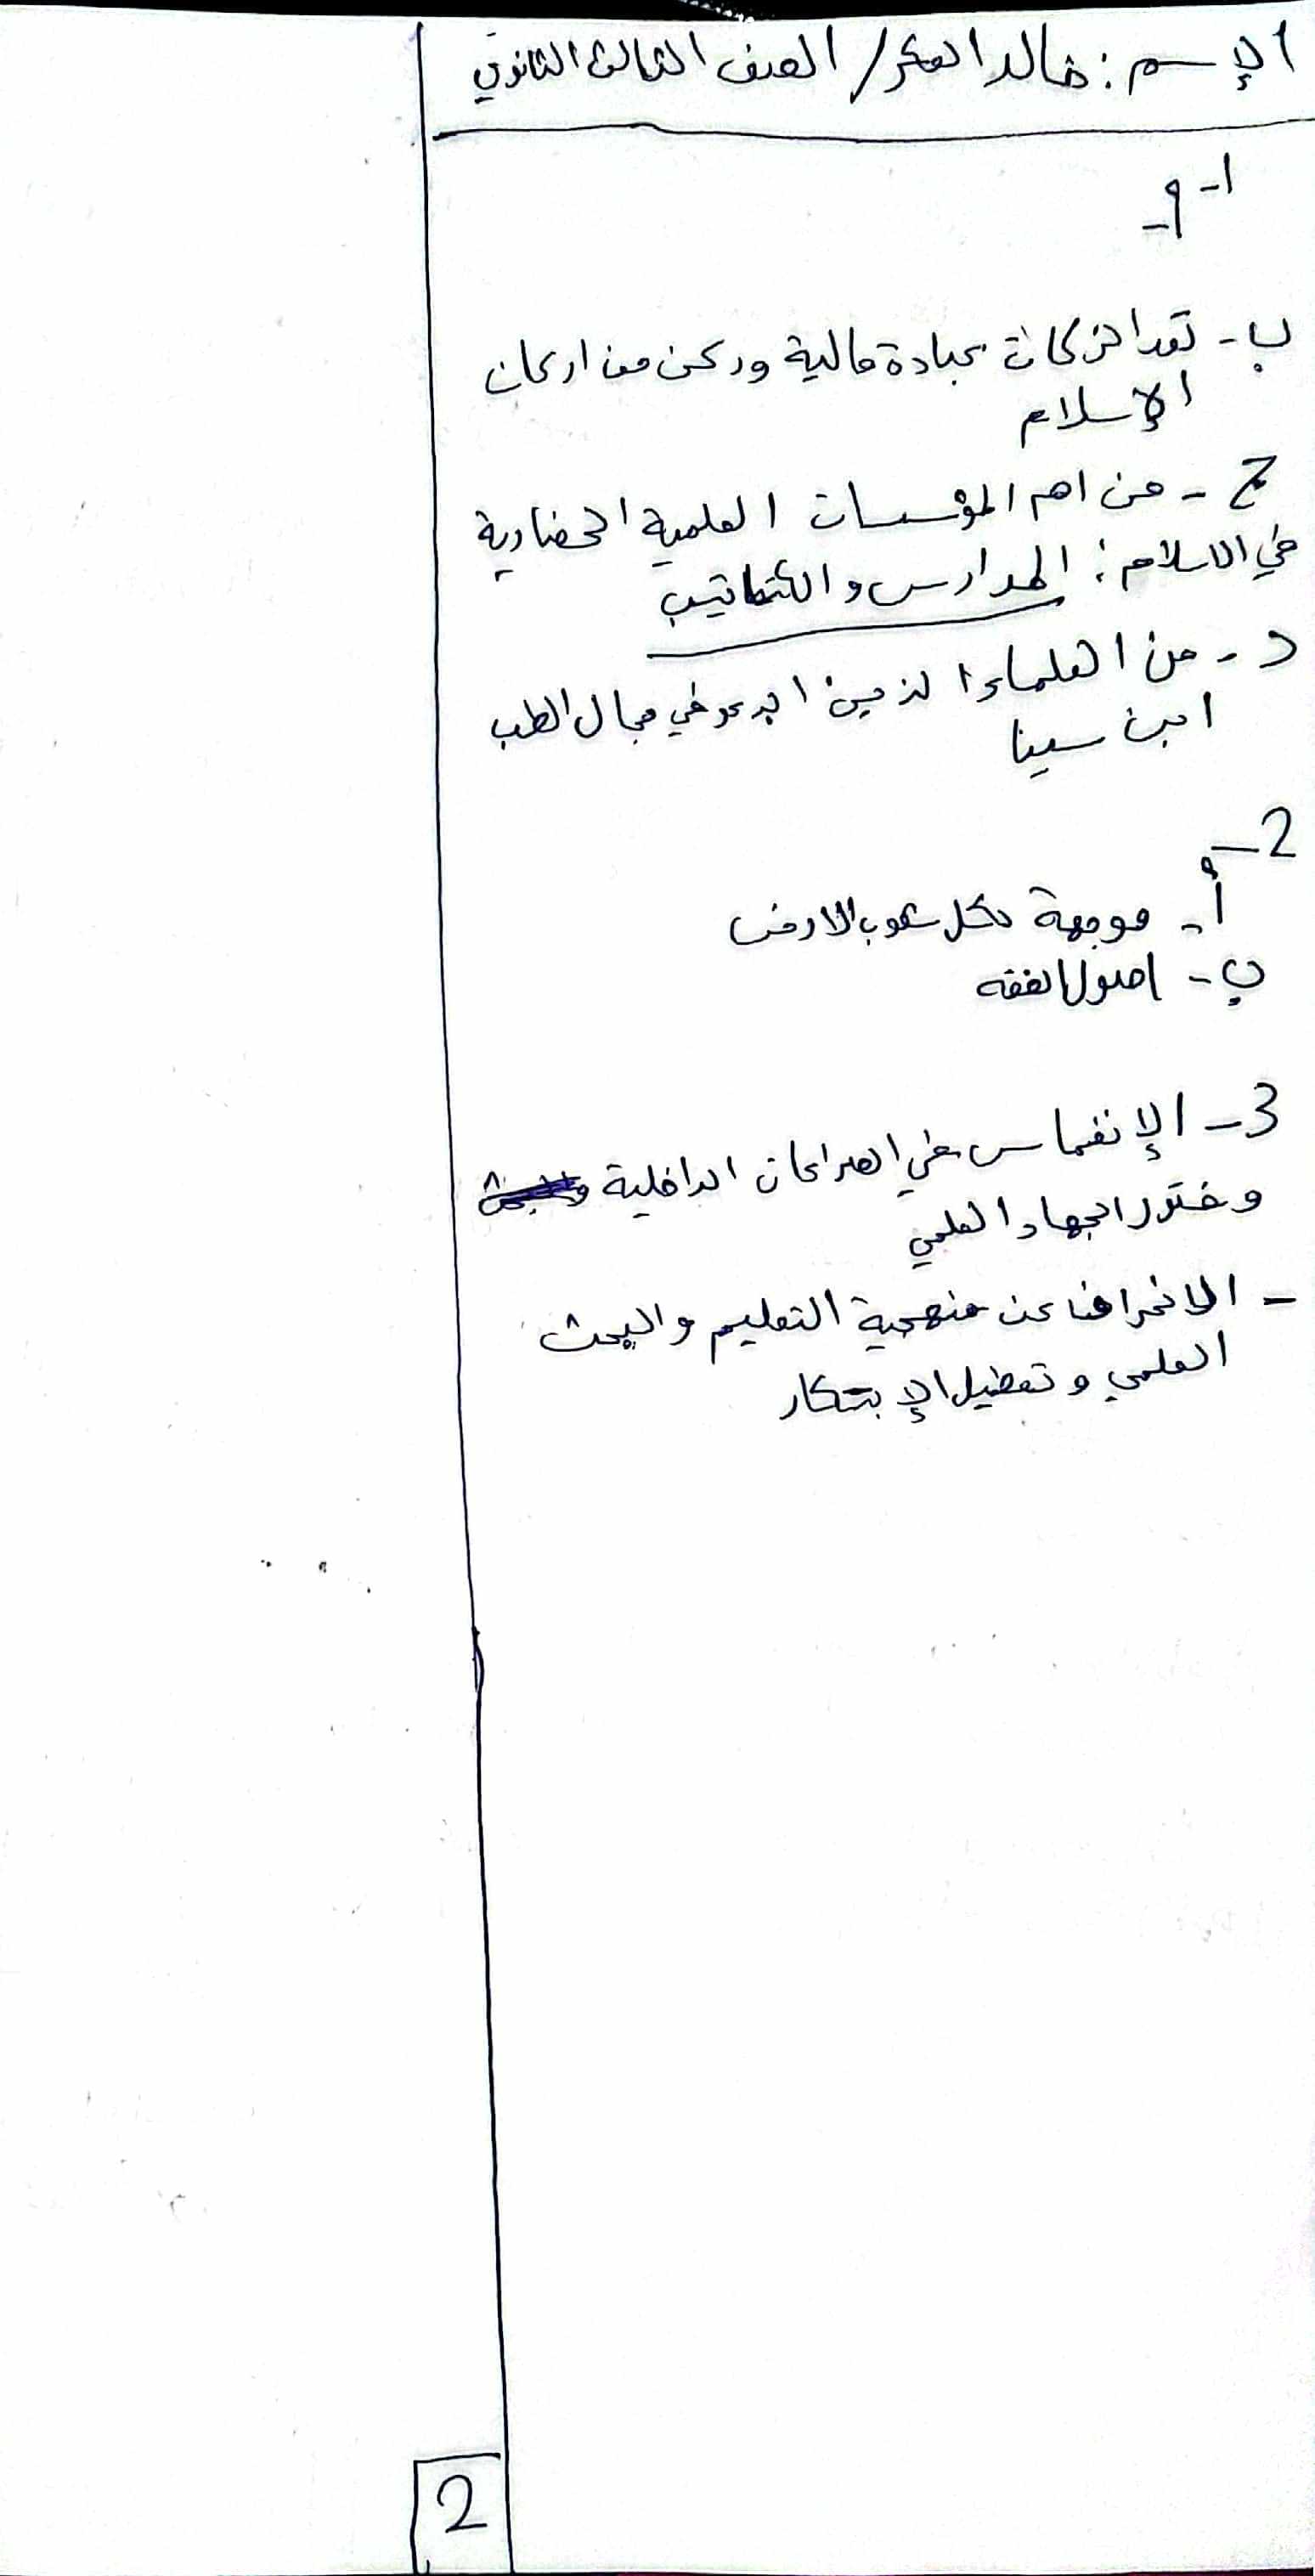 الإسم: خالد العكر / الصف الثالث الثانوي
1- أ-
ب- تعد الزكاة عبادة مالية وركن من اركان
الإسلام
ج - من اهم المؤسسات العلمية الحضارية
في الاسلام: المدارس والكتاتيب
د - من العلماء الذين ابدعو في مجال الطب
ابن سينا
2-
أ- موجهة لكل شعوب الارض
ب- اصول الفقه
3- الإنغماس في الصراعات الداخلية
وفتور الجهاد العلمي
- الانحراف عن منهجية التعليم والبحث
العلمي وتعطيل الإبتكار
2